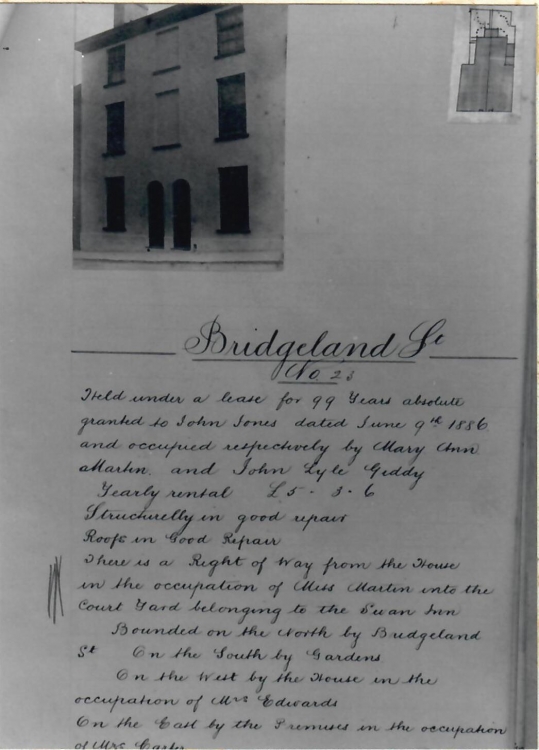 Bridgeland St
No. 23
Held under a lease for 99 Years absolute
granted to John Jones dated June 9th 1886
and occupied respectively by Mary Ann
Martin. and John Lyle Geddy
Yearly rental £5 - 3 - 6
Structurelly in good repair
Roofs in Good Repair
There is a Right of Way from the House
in the occupation of Miss Martin into the
Court Yard belonging to the Swan Inn
Bounded on the North by Bridgeland
St On the South by Gardens
On the West by the House in the
occupation of Mrs Edwards
On the East by the Premises in the occupation
of Mrs